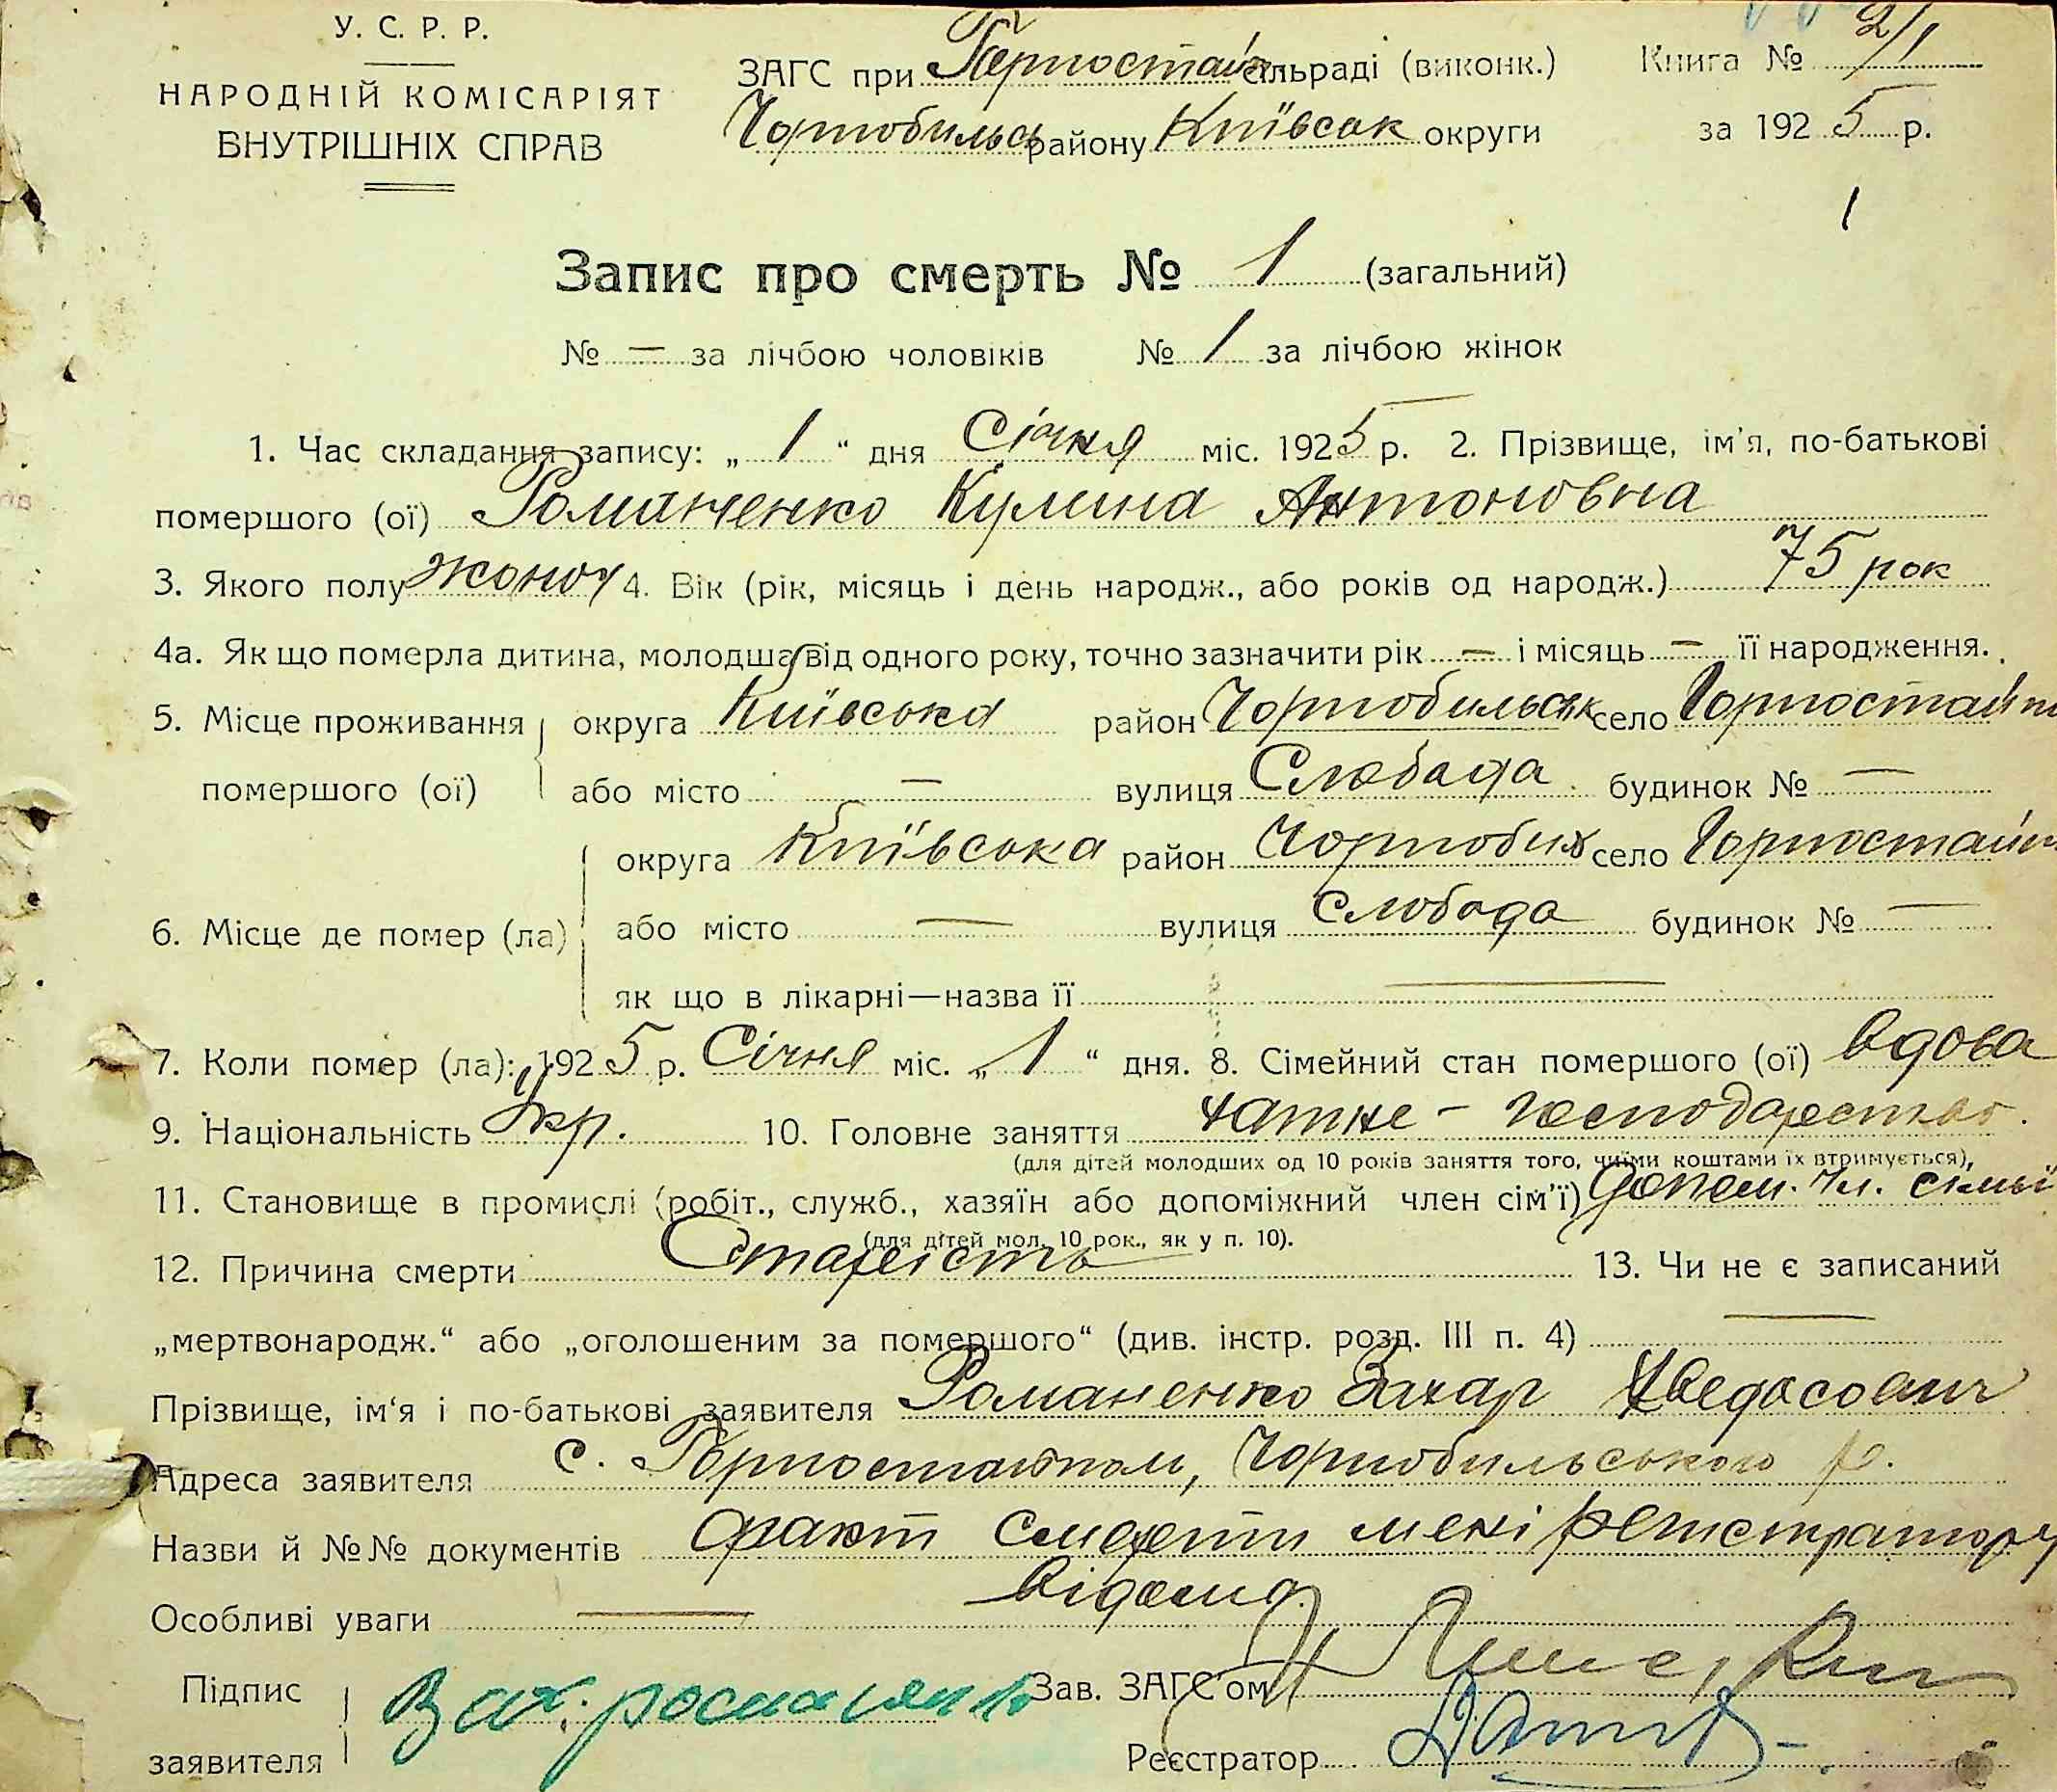 У. С. Р. Р.
НАРОДНІЙ КОМІСАРІЯТ
ВНУТРІШНІХ СПРАВ
ЗАГС при Горностай сільраді (виконк.)
Чорнобильс району Київськ округи
Книга № 2/1
за 1925 р.
1
Запис про смерть № 1 (загальний)
№ — за лічбою чоловіків № 1 за лічбою жінок
1. Час складання запису: „ 1 “ дня Січня міс. 1925 р. 2. Прізвище, ім'я, по-батькові
помершого (ої) Романенко Кулина Антоновна
3. Якого полу жоноч 4. Вік (рік, місяць і день народж., або років од народж.) 75 рок
4а. Як що померла дитина, молодша від одного року, точно зазначити рік — і місяць — її народження.
5. Місце проживання помершого (ої) округа Київська район Чорнобильськ село Горностайп
або місто — вулиця Слобода будинок № —
6. Місце де помер (ла) округа Київська район Чорнобил село Горностайп
або місто — вулиця Слобода будинок № —
як що в лікарні—назва її —
7. Коли помер (ла): 1925 р. Січня міс. „ 1 “ дня. 8. Сімейний стан помершого (ої) вдова
9. Національність Укр. 10. Головне заняття хатнє - господарство.
(для дітей молодших од 10 років заняття того, чиїми коштами їх втримується),
11. Становище в промислі (робіт., служб., хазяїн або допоміжний член сім'ї) допом. чл. сімьї
(для дітей мол. 10 рок., як у п. 10).
12. Причина смерти Старість 13. Чи не є записаний
„мертвонародж.“ або „оголошеним за помершого“ (див. інстр. розд. III п. 4) —
Прізвище, ім'я і по-батькові заявителя Романенко Захар
Адреса заявителя с. Горностайпом, Чорнобильського р.
Назви й №№ документів факт смерти мені регистратору
відомо.
Особливі уваги —
Підпис заявителя Зах.
Зав. ЗАГС'ом
Реєстратор